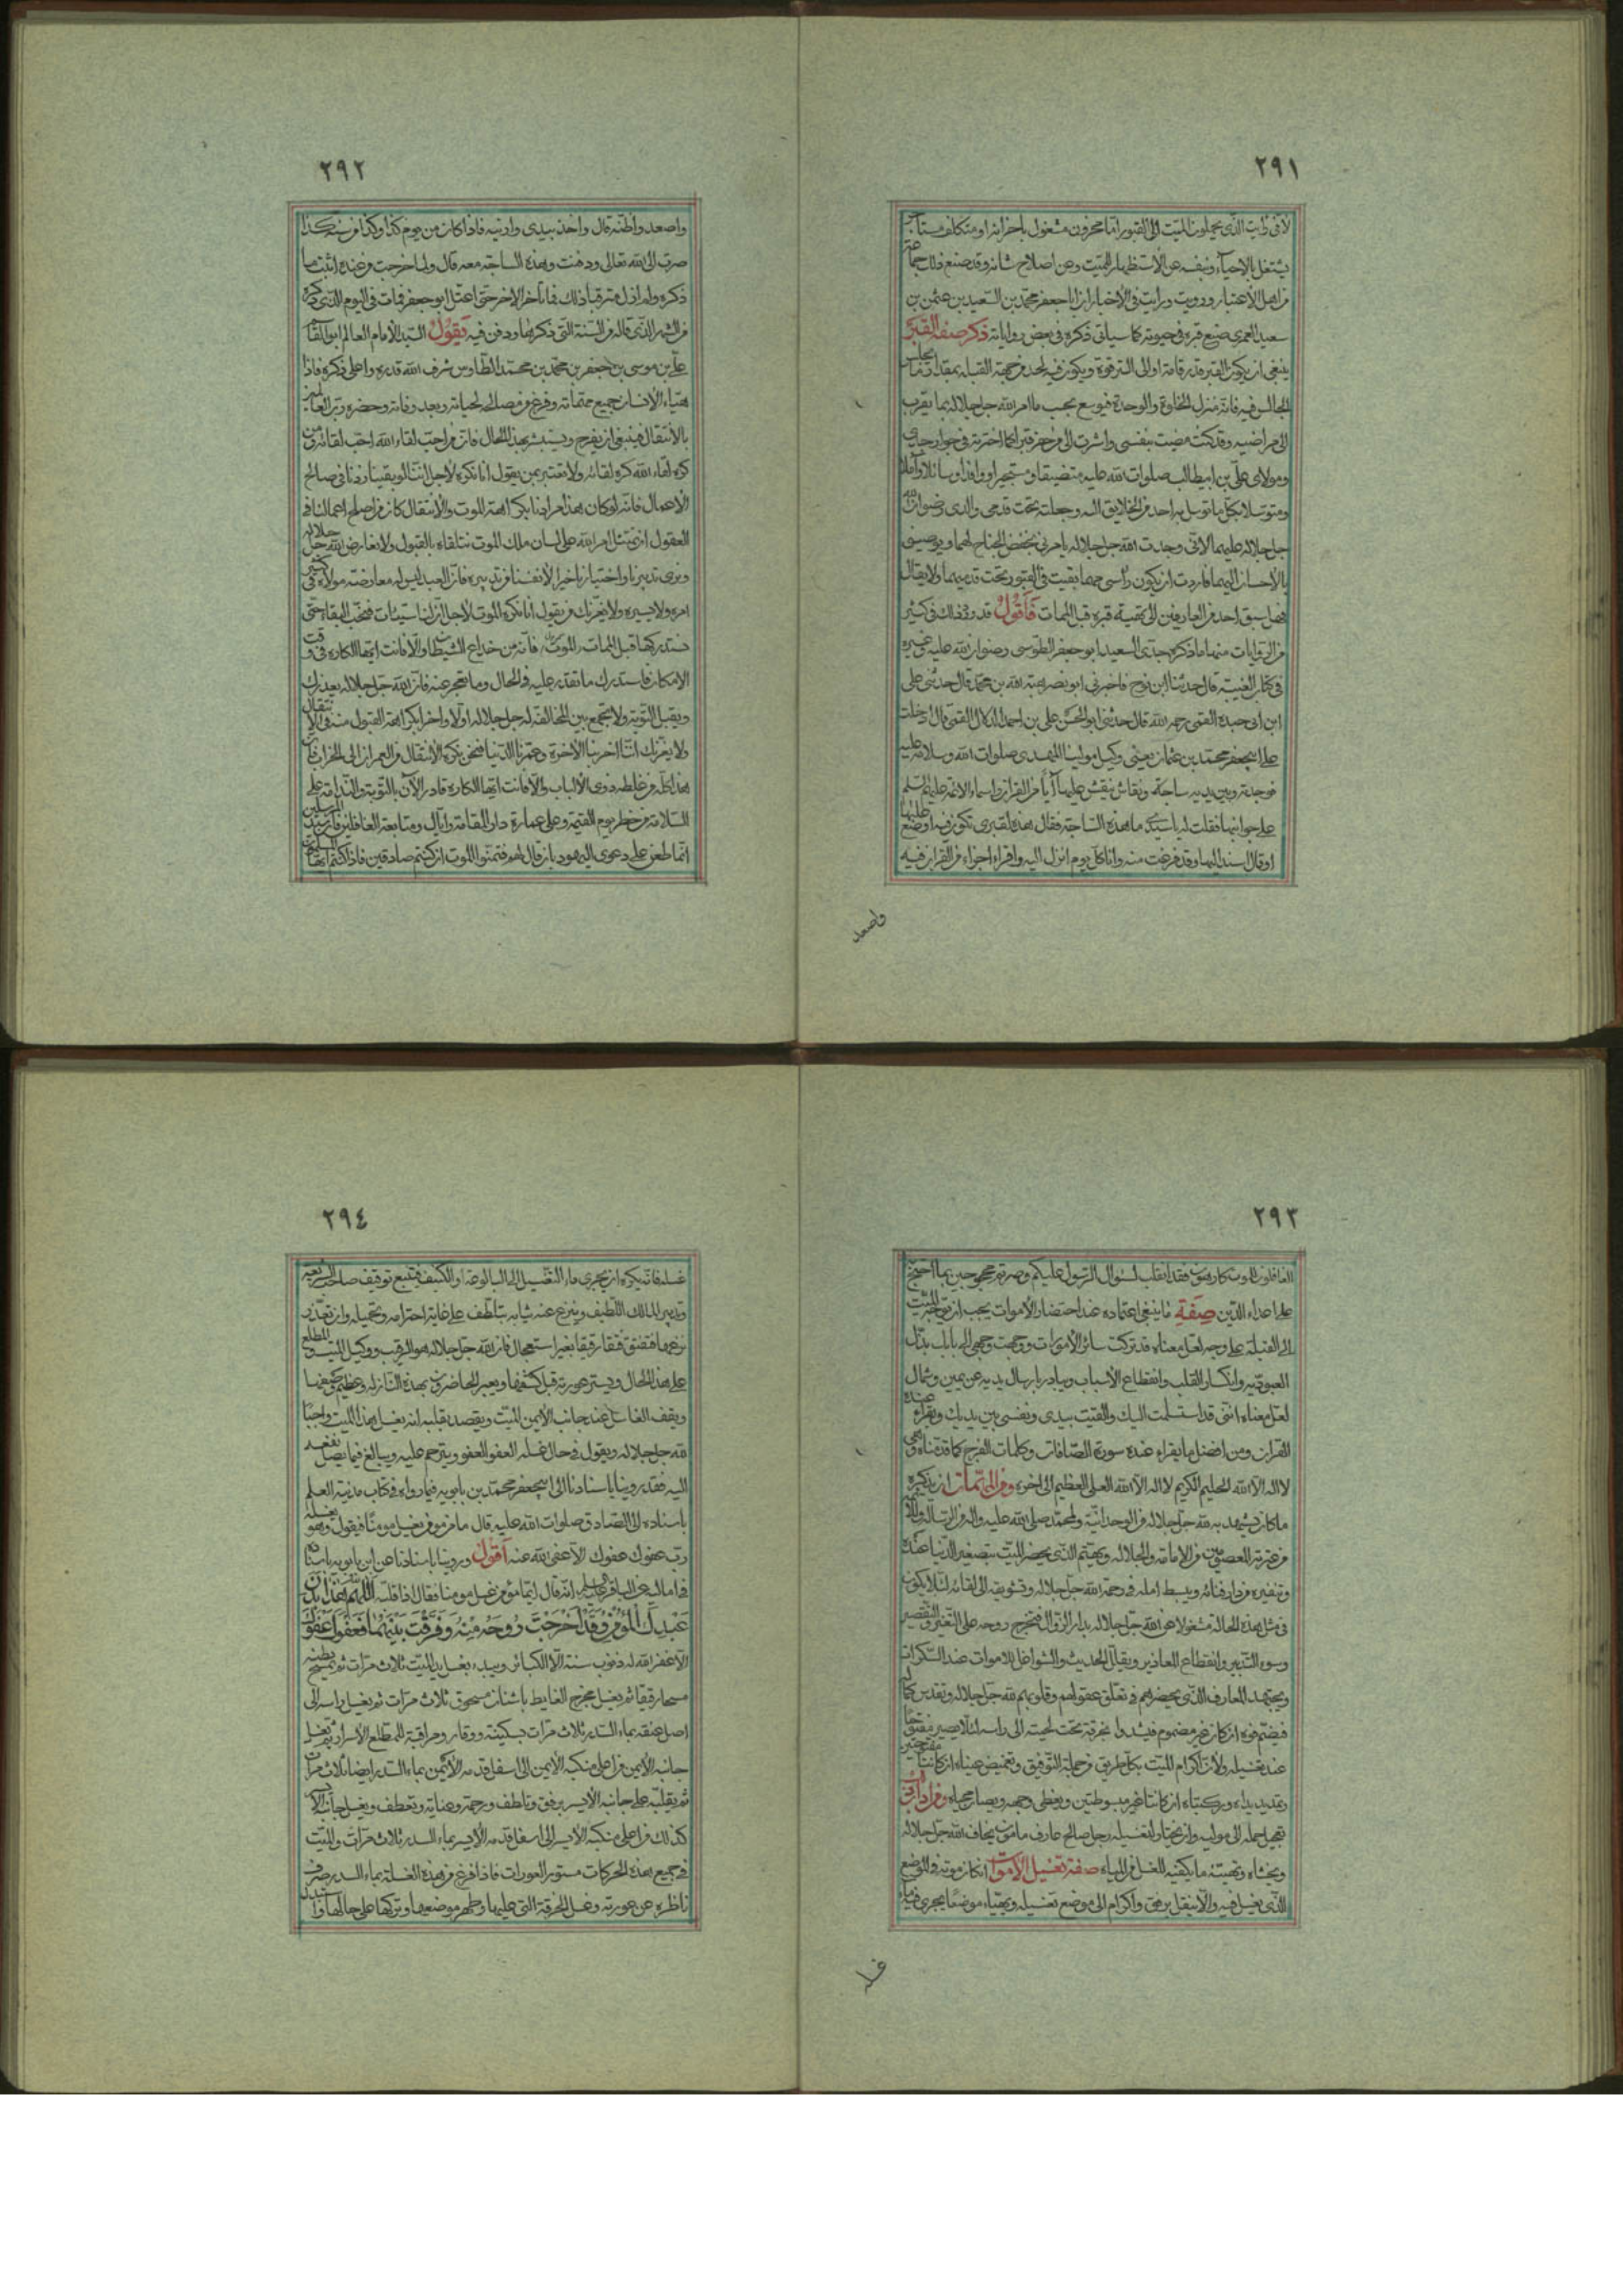 ٢٩١
لانني رايت الذي يحملون الميت الى القبور اما محزون مشغول باحزانه او متكلف مستاجر
يشتغل بالاحياء وبنفسه عن الاستظهار للميت وعن اصلاح شانه وقد صنع ذلك جماعة
من اهل الاعتبار ورويت ورايت في الاخبار ان ابا جعفر محمد بن السعيد بن عثمن بن
سعيد العمري صنع قبره في حيوته كما سياتي ذكره في بعض رواياته ذكر صفة القبر
ينبغي ان يكون القبر قدر قامة او الى الترقوة ويكون فيه لحد من جهة القبلة بمقدار ما يجلس
الجالس فيه فانه منزل الخلوة والوحدة فيوسع بحسب ما امر الله جل جلاله بما يقرب
الى مراضيه وقد كنت مضيت بنفسي واشرت الى من حفر قبرا كما اخترته في جوار جدي
ومولاي علي بن ابيطالب صلوات الله عليه متضيفا ومستجيرا ووافدا وسائلا وآملا
ومتوسلا بكل ما توسل به احد من الخلايق اليه وجعلته تحت قدمي والدي رضوان الله
جل جلاله عليهما لانني وجدت الله جل جلاله يامرني بخفض الجناح لهما ويوصيني
بالاحسان اليهما فاردت ان يكون راسي مهما بقيت في القبور تحت قدميهما ولا يقال
فهل سبق احد من العارفين الى تهيئة قبره قبل الممات فاقول قد روى ذلك في كثير
من الروايات منها ما ذكره جدي السعيد ابو جعفر الطوسي رضوان الله عليه وغيره
في كتاب الغيبة قال حدثنا ابن نوح فاخبرني ابو نصر هبة الله بن محمد قال حدثني علي
ابن ابي جيدة القمي رحمه الله قال حدثني ابو الحسن علي بن احمد الدلال القمي قال دخلت
على ابيجعفر محمد بن عثمان يعني وكيل مولينا المهدي صلوات الله وسلامه عليه
فوجدته وبين يديه ساجة ونقاش ينقش عليها آيا من القران واسماء الائمة عليهم السلم
على جوانبها فقلت له يا سيدي ما هذه الساجة فقال هذه لقبري تكون فيه اوضع عليها
او قال اسند اليها وقد فرغت منه وانا كل يوم انزل اليه واقرا اجزاء من القران فيه
واصعد
٢٩٢
واصعد واظنه قال واخذ بيدي وارنيه فاذا كان من يوم كذا وكذا من سنة كذا
صرت الى الله تعالى ودفنت وهذه الساجة معه قال ولما خرجت من عنده اثبت ما
ذكره ولم ازل مترقبا ذلك فما تاخر الامر حتى اعتل ابو جعفر فمات في اليوم الذي ذكره
من الشهر الذي قاله من السنة التي ذكرها ودفن فيه يقول السيد الامام العالم ابو القاسم
علي بن موسى بن جعفر بن محمد بن محمد الطاوس شرف الله قدره واعلى ذكره فاذا
هيّاء الانسان جميع مهماته وفرغ من مصالحه لحياته وبعد وفاته وحضره وتر العالمين
بالانتقال فينبغي ان يفرح ويستبشر بهذا الحال فان من احب لقاء الله احب لقائه ومن
كره لقاء الله كره لقائه ولا تعتبر بمن يقول انا نكره لاجل اننا لو بقينا زدنا في صالح
الاعمال فانه لو كان هذا مرادنا بكراهة الموت والانتقال كان من اصلح اعمالنا في
العقول ان نمتثل امر الله على لسان ملك الموت نتلقاه بالقبول ولا نعارض الله جل جلاله
ونرى تدبيرنا واختيارنا خيرا لانفسنا من تدبيره فان العبد ليس له معارضة مولاه في كثير
امره ولا يسيره ولا يغرنك من يقول انا نكره الموت لاجل ان لنا سيئات فنحب البقاء حتى
نستدركها قبل الممات الموت فانه من خداع الشيطان والا فانت ايها الكاره في وقت
الامكان فاستدرك ما تقدر عليه في الحال وما تعجز عنه فان الله جل جلاله يعذرك
ويقبل التوبة ولا تجمع بين المخالفة له جل جلاله اولا واخرا بكراهة القبول منه في الانتقال
ولا يغرنك اننا اخربنا الاخرة وعمرنا الدنيا فنحن نكره الانتقال من العمران الى الخراب فان
هذا كله من غلطه ذوي الالباب والا فانت ايها الكاره قادر الآن بالتوبة والندامة على
السلامة من خطر يوم القيمة وعلى عمارة دار المقامة واياك ومتابعة الغافلين فان سيد المرسلين
انما طعن على دعوى اليهود بان قال لهم فتمنوا الموت ان كنتم صادقين فاذا كنتم ايها المسلمون
٢٩٣
الغافلون للموت كارهون فقد انقلب لسؤال الرسول عليكم وصرتم محجوجين بما احتج
على اعداء الدين صفة ما ينبغي اعتماده عند احتضار الاموات يجب ان توجه الميت
الى القبلة على وجه لعل معناه قد تركت سائر الامورات ووجهت وجهي الى باب بذل
العبودية وانكسار القلب وانقطاع الاسباب ويبادر بارسال يديه عن يمين وشمال
لعل معناه انني قد استسلمت اليك والقيت بيدي ونفسي بين يديك ويقراء عنده
القران ومن افضل ما يقراء عنده سورة الصافات وكلمات الفرج كما قدمناه وهي
لا اله الا الله الحليم الكريم لا اله الا الله العلي العظيم الى اخره ومن المهمات ان يذكره
ما كان يشهد به لله جل جلاله من الوحدانية ولمحمد صلى الله عليه واله من الرسالة وللائمة
من عترته المعصومين من الامامة والجلالة ويهتم الذي يحضر الميت بتصغير الدنيا عنده
وتنفيره من دار فنائه ويبسط امله في رحمة الله جل جلاله وتشويقه الى لقائه لئلا يكون
في مثل هذه الحالة مشغولا عن الله جل جلاله بدار الزوال فتخرج روحه على التغير والتقصير
وسوء التدبير وانقطاع المعاذير ويقلل الحديث والشواغل للاموات عند السكرات
ويجتهد المعارف الذي يحضرهم في تعلق عقولهم وقلوبهم لله جل جلاله وتقديس كماله
فيضم فوه ان كان غير مضموم فيشدوا بخرقة تحت لحيته الى راسه لئلا يصير مفتوحا
عند تغسيله ولان اكرام الميت بكل طريق من جملة التوفيق وتغميض عيناه ان كانتا مفتوحتين
وتمد يداه وركبتاه ان كانتا غير مبسوطتين ويغطى وجهه ويصان محياه ومن اداب
تعجيل حمله الى مولاه وان يختار لتغسيله رجل صالح عارف مامون يخاف الله جل جلاله
ويخشاه وتهيئة ما يكفيه للغسل من المياه صفة تغسيل الاموات ان كان موته في الموضع
الذي يغسل فيه والا نيقل برفق واكرام الى موضع تغسيله ويهيّاء موضعا يجري فيه ماء
٢٩٤
غسله فانه يكره ان يجري ماء التغسيل الى البالوعة او الكنيف فيتبع توقيف صاحب الشريعة
وتدبير المالك اللطيف وينزع عنه ثيابه بتلطف على غاية احترامه وتجميله وان تعذر
نزعها فتفتق فتقا رقيقا بغير استعجال فان الله جل جلاله هو الرقيب ووكيل الميت والمطلع
على هذا الحال ويستر عورته قبل كشفها ويعتبر الحاضرون بهذه النازلة وعظيم وصفها
ويقف الغاسل عند جانب الايمن للميت ويقصد بقلبه انه يغسل هذا الميت واجبا
لله جل جلاله ويقول في حال غسله العفو العفو ويترحم عليه ويبالغ فيما يصل نفعه
اليه فقد روينا باسنادنا الى ابيجعفر محمد بن بابويه فيما رواه في كتاب مدينة العلم
باسناده الى الصادق صلوات الله عليه قال ما من مؤمن يغسل مؤمنا فيقول وهو يغسله
رب عفوك عفوك الا عفى الله عنه اقول وروينا باسنادنا عن ابن بابويه باسناده
في اماليه عن الباقر عليه السلم انه قال ايما مؤمن غسل مومنا فقال اذا قلبه اللهم هذا بدن
عبدك المؤمن وقد اخرجت روحه منه وفرقت بينهما فعفوك عفوك
الا غفر الله له ذنوب سنة الا الكبائر ويبدء بغسل يد الميت ثلاث مرات ثم يمسح بطنه
مسحا رقيقا ثم يغسل مخرج الغايط باشنان مسحوق ثلاث مرات ثم يغسل راسه الى
اصل عنقه بماء السدر ثلاث مرات بسكينة ووقار ومراقبة للمطلع الاسرار ثم يغسل
جانبه الايمن من اعلى منكبه الايمن الى اسفل قدمه الايمن بماء السدر ايضا ثلاث مرات
ثم يقلبه على جانبه الايسر برفق وتلطف ورحمة وعناية وتعطف ويغسل جانبه الا
كذلك من اعلى منكبه الايسر الى اسفل قدمه الايسر بماء السدر ثلاث مرات والميت
في جميع هذه الحركات مستور العورات فاذا فرغ من هذه الغسلة بماء السدر صرف
ناظره عن عورته وغسل الخرقة التي عليها وطهر موضعها وتركها على حالها